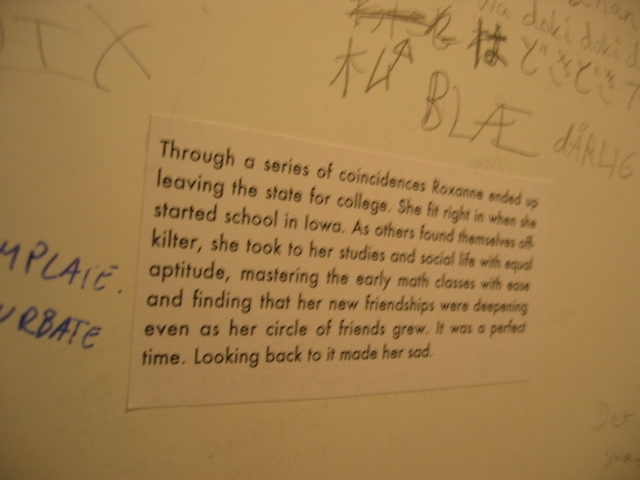 IX
は ど
BLÆ dÅRLIG
Through a series of coincidences Roxanne ended up
leaving the state for college. She fit right in when she
started school in Iowa. As others found themselves off-
kilter, she took to her studies and social life with equal
aptitude, mastering the early math classes with ease
and finding that her new friendships were deepening
even as her circle of friends grew. It was a perfect
time. Looking back to it made her sad.
MPLATE.
URBATE
Det